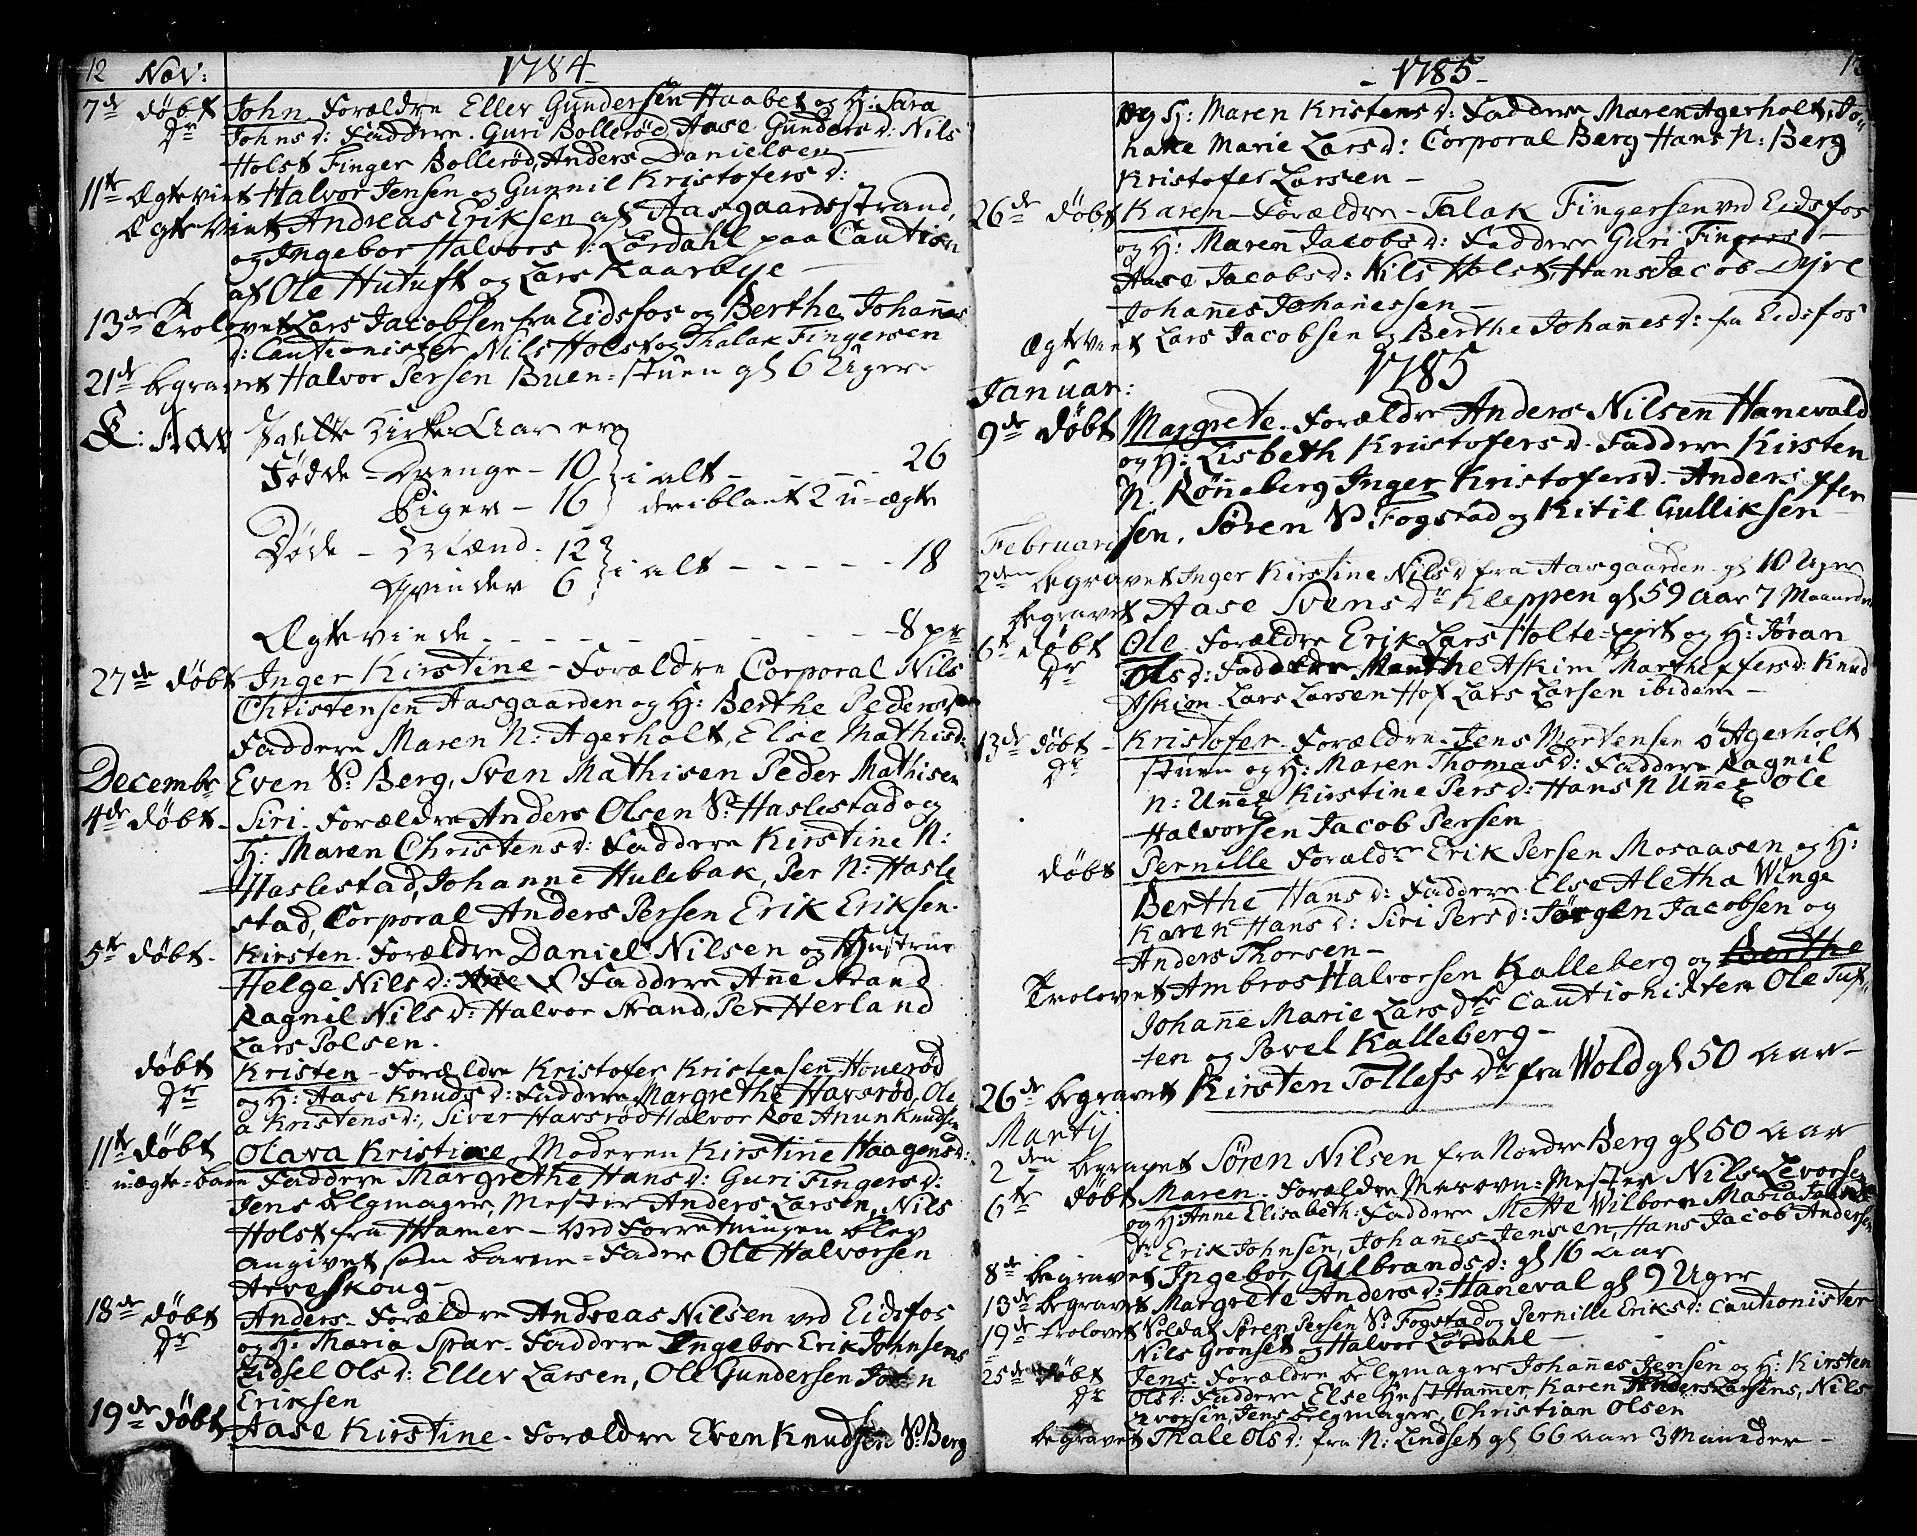 12 Nov: 1784
7de døbt John Forældre Eller Gundersen Haabet og H: Sara
Johns d: Faddere Guri Bollerød Aase Gunders d: Nils
Holst Finger Bollerød, Anders Danielsen
11te Ægteviet Halvor Jensen og Gunnil Kristofers d:
Ægteviet Andreas Eriksen af Aasgaardsstrand
og Ingebor Halvors d: Lørdahl paa Caution
af Ole Hutuft og Lars Kaarbye
13de Trolovet Lars Jacobsen fra Eidsfos og Berthe Johañes
d: Cautionister Nils Holst og Thalak Fingersen
21de begravet Halvor Persen Buen-stuen gl 6 Uger
Kirke Aar ere
Fødde Drenge - 10 i alt - - - - 26
Piger - 16 deriblant 2 u-ægte
Døde - Mænd - 12 i alt - - - - - 18
Qvinder 6
Ægteviede - - - - - - - 8 pr
27de døbt Inger Kirstine - Forældre Corporal Nils
Christensen Aasgaarden og H: Berthe Peders
Faddere Maren N: Agerholt, Else Mathis d:
Decembr Even S: Berg, Sven Mathisen Peder Mathisen
4de døbt - Siri - Forældre Anders Olsen S: Haslestad og
H: Maren Christens d: Faddere Kirstine N:
Haslestad, Johanne Hulebak, Per N: Hasle
stad, Corporal Anders Persen Erik Eriksen.
5te døbt - Kirsten. Forældre Daniel Nilsen og Hustrue
Helge Nils d: Faddere Añe Strand
Ragnil Nils d: Halvor Strand, Per Herland
Lars Polsen.
døbt Kristen - Forældre Kristofer Kristensen Honerød
dr og H: Aase Knuds d: Faddere Margrethe Havsrød, Ole
a Kristens d:, Siver Havsrød Halvor Roe Anun Knudsen
11te døbt Olava Kristine, Moderen Kirstine Haagens d:
u-ægte-barn Faddere Margrethe Hans d: Guri Fingers d:
Jens Belgmager, Mester Anders Larsen, Nils
Holst fra Hamer - ved Forretningen blev
angivet som barne-Fader Ole Halvorsen
Arveskoug -
18de døbt Anders - Forældre Andreas Nilsen ved Eidsfos
dr og H: Maria Spar - Faddere Ingebor Erik Johnsens
Lidsel Ols d: Eller Larsen, Ole Gundersen
Eriksen
19de døbt Aase Kirstine - Forældre Even Knudsen S: Berg
- 1785 - 13
og H: Maren Kristens d: Faddere Maren Agerholt, Jo-
hane Marie Lars d: Corporal Berg Hans N: Berg
Kristofer Larsen -
26de døbt Karen - Forældre - Talak Fingersen ved Eidsfos
og H: Maren Jacobs d: Faddere Guri Fingers -
Aase Jacobs d: Nils Holst, Hans Jacob Dyre
Johañes Johanessen -
Ægteviet Lars Jacobsen og Berthe Johañes d: fra Eidsfos
1785
Januar:
9de døbt Margrete. Forældre Anders Nilsen Hanevald
og H: Lisbeth Kristofers d. Faddere Kirsten
N. Røñeberg Inger Kristofers d. Anders Iffer
sen, Søren S: Fogstad og Kitil Gulliksen
Februari
2den begravet Inger Kirstine Nils d fra Aasgaarden gl 10 Uger
begravet Aase Svens dr Kleppen gl 59 Aar 7 Maaneder
6te døbt Ole - Forældre Erik Lars Holte-eiet og H: Jøran
dr Ols d: Faddere Marthe Askim Marthe Iffers d: Knud
Askim - Lars Larsen Hof Lars Larsen ibidem -
13de døbt - Kristofer - Forældre - Jens Mortensen Ø Agerholt
dr stuen og H: Maren Thomas d: Faddere Ragnil
N: Uñes Kirstine Pers d: Hans N Uñes Ole
Halvorsen Jacob Persen
døbt Pernille Forældre Erik Persen Mosaasen og H:
Berthe Hans d: Faddere Else Aletha Winge
Karen Hans d: Siri Pers d: Jørgen Jacobsen og
Anders Thorsen -
Trolovet Ambros Halvorsen Kalleberg og Berthe
Johañe Marie Lars dtr Cautionister Ole Tuf-
ten og Povel Kalleberg -
26de begravet Kirsten Tollefs dr fra Wold gl 50 Aar -
Martij
2den begravet Søren Nilsen fra Nordre Berg gl 50 Aar
6te døbt Maren - Forældre Masovn-Mester Nils Levorsen
og H: Añe Elisabeth: Faddere Mette Wilborn Maria
dr Erik Johnsen, Johañes Jensen, Hans Jacob Andersen
8de begravet Ingebor Gulbrands d: gl 16 Aar
13de begravet Margrete Anders d: Haneval gl 9 Uger
19de trolovet Soldat Søren Persen S: Fogstad og Pernille Eriks d: Cautionister
Nils Grønset og Halvor Lørdahl -
25de døbt Jens - Forældre Belgmager Johañes Jensen og H: Kirsten
dr Ols d: Faddere Else Hamer, Karen Anders Larsens, Nils
Jens Belgmager, Christian Olsen
begravet Thale Ols d: fra N: Lindset gl 66 Aar 3 Maaneder -